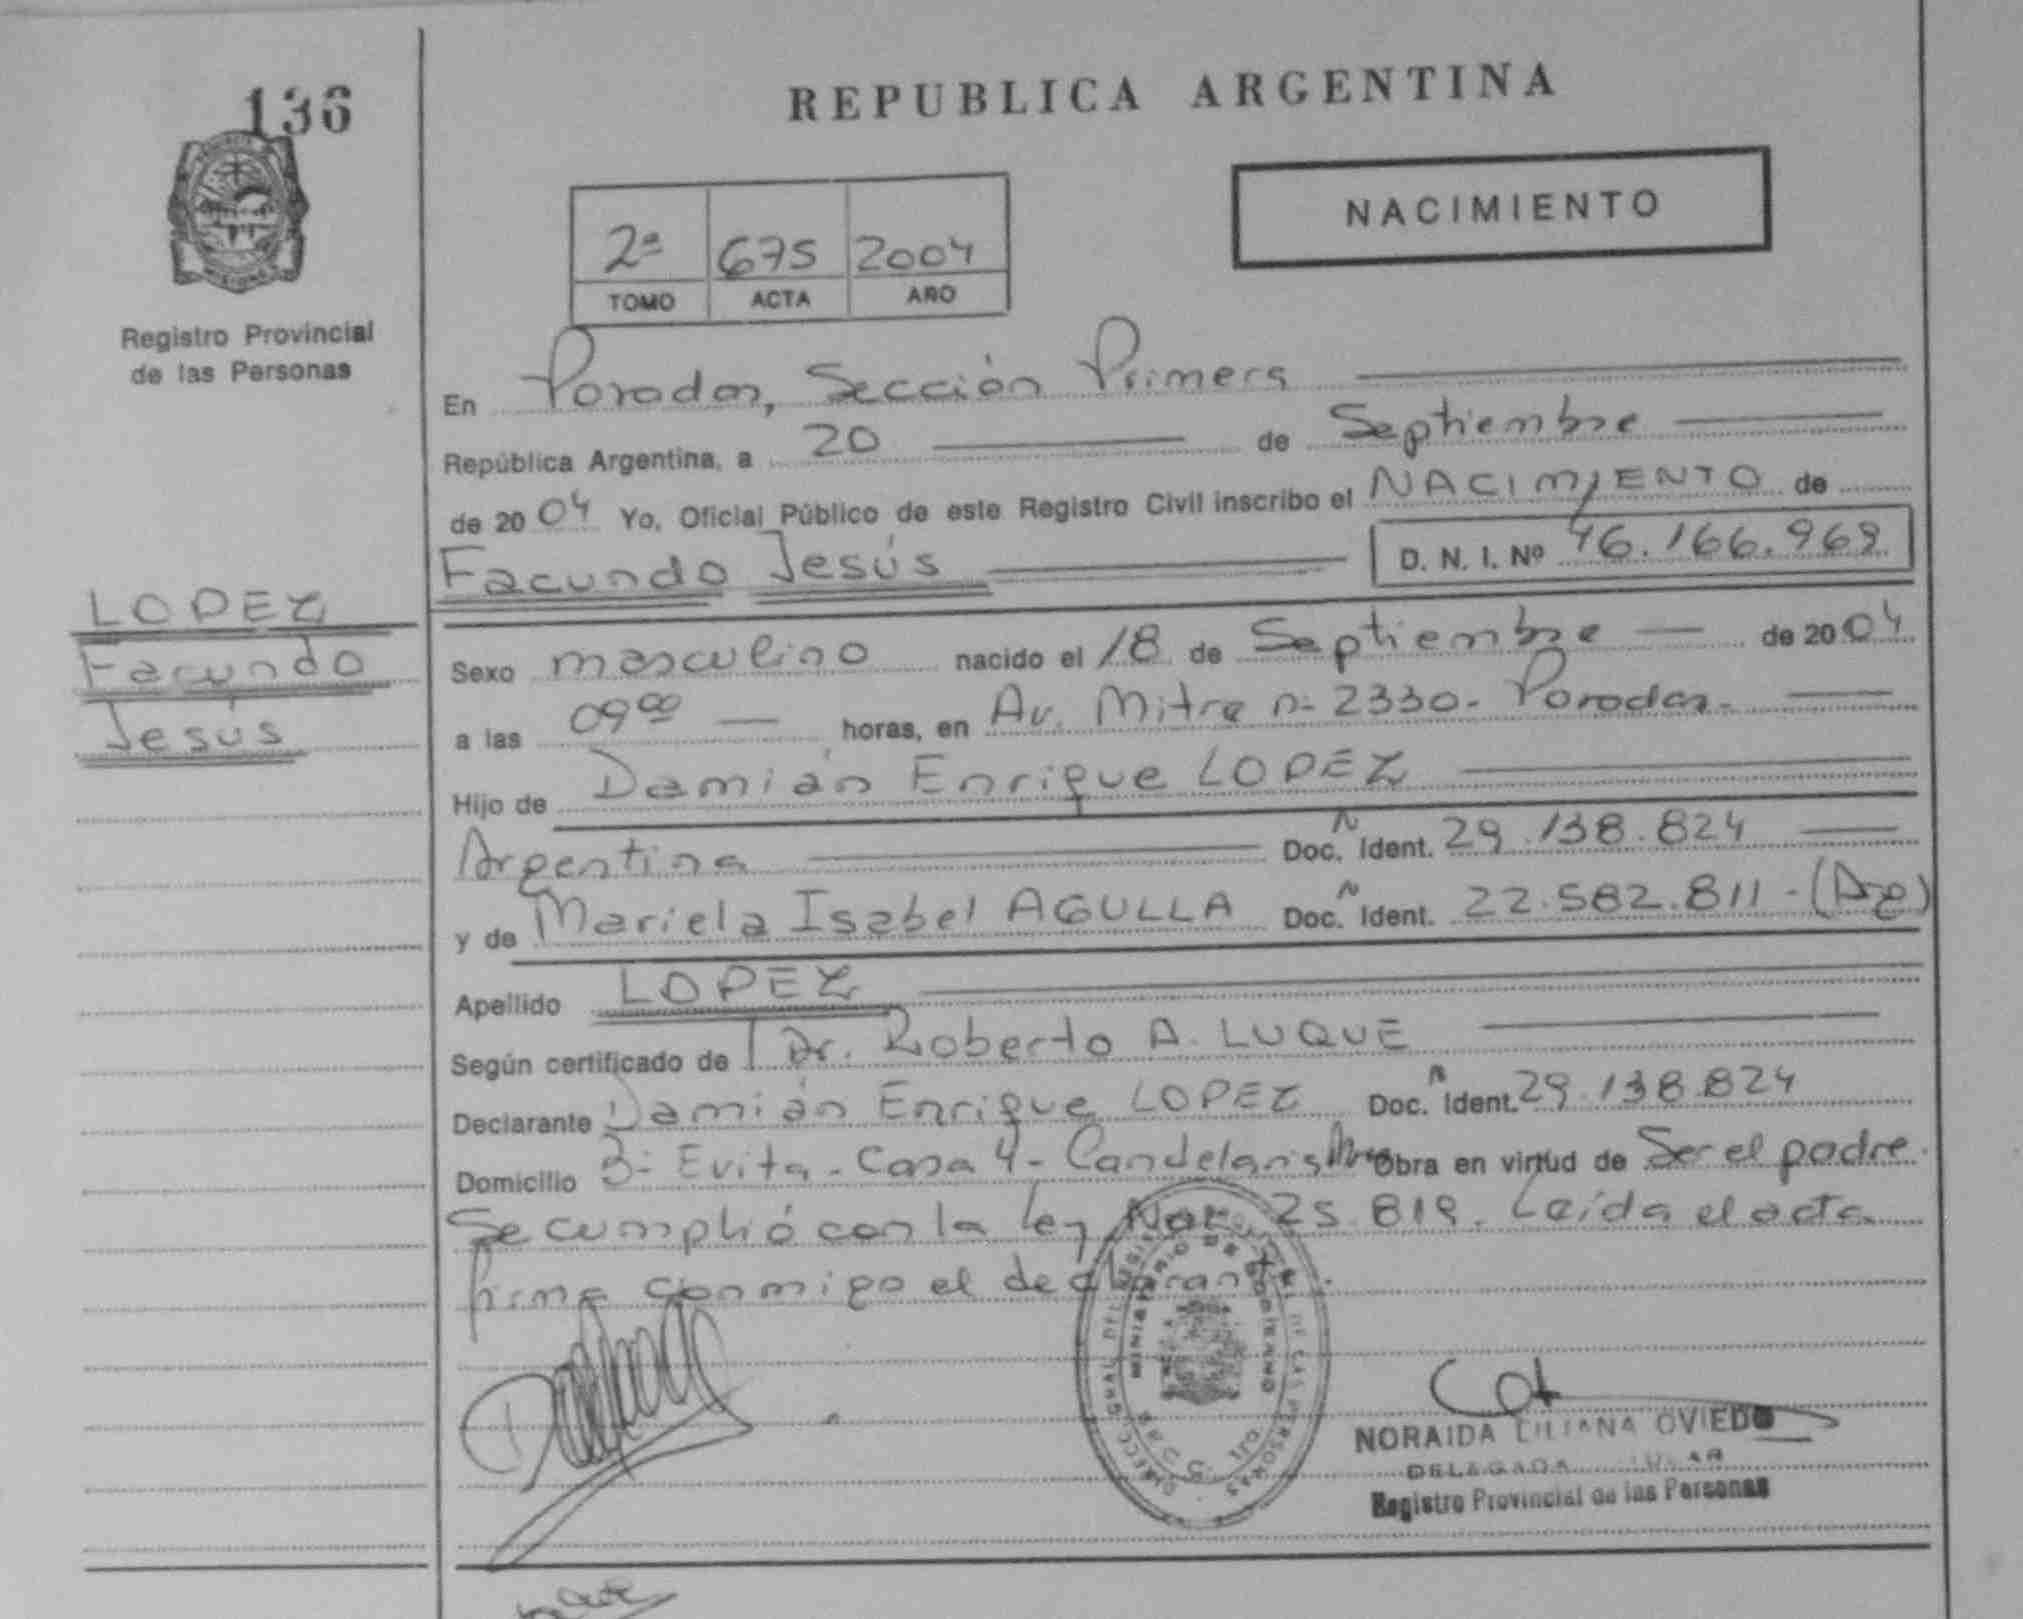 136
REPUBLICA ARGENTINA
NACIMIENTO
2ª 675 2004
TOMO ACTA AÑO
Registro Provincial
de las Personas
En Posadas, Sección Primera
República Argentina, a 20 de Septiembre
de 2004 Yo, Oficial Público de este Registro Civil inscribo el NACIMIENTO de
Facundo Jesús D. N. I. Nº 46.166.969
LOPEZ
Facundo
Jesús
Sexo masculino nacido el 18 de Septiembre de 2004
a las 09ºº horas, en Av. Mitre nº 2330- Posadas-
Hijo de Damián Enrique LOPEZ
Argentina Doc. Ident. 29.138.824
y de Mariela Isabel AGULLA Doc. Ident. 22.582.811-(Arg)
Apellido LOPEZ
Según certificado de Dr. Roberto A. LUQUE
Declarante Damián Enrique LOPEZ Doc. Ident. 29.138.824
Domicilio Bº Evita - Casa 4 - Candelaria Mnes Obra en virtud de Ser el padre.
Se cumplió con la ley Nac. 25.819. Leída el acta
firma conmigo el declarante.
MINISTERIO DE GOBIERNO
NORAIDA LILIANA OVIEDO
DELEGADA TITULAR
Registro Provincial de las Personas